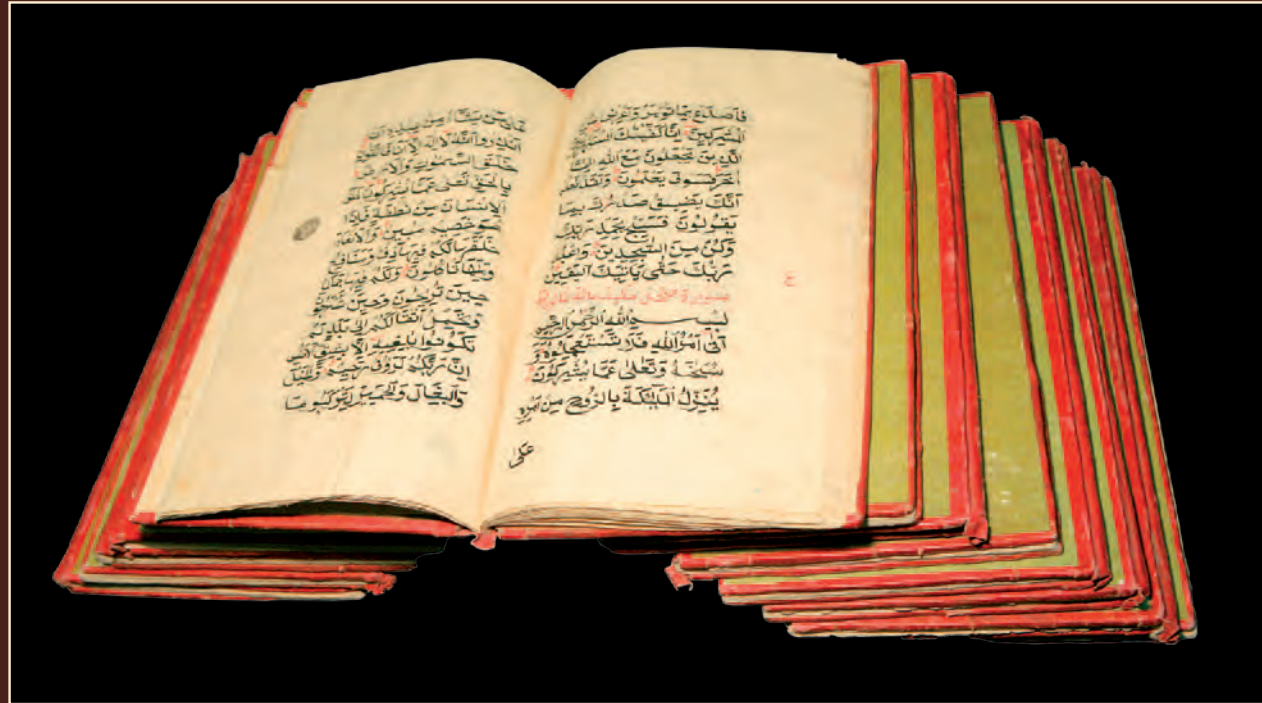 فَاصْدَعْ بِمَا تُؤْمَرُ وَأَعْرِضْ عَنِ
الْمُشْرِكِينَ إِنَّا كَفَيْنَاكَ الْمُسْتَهْزِئِينَ
الَّذِينَ يَجْعَلُونَ مَعَ اللَّهِ إِلٰهًا
آخَرَ فَسَوْفَ يَعْلَمُونَ وَلَقَدْ نَعْلَمُ
أَنَّكَ يَضِيقُ صَدْرُكَ بِمَا
يَقُولُونَ فَسَبِّحْ بِحَمْدِ رَبِّكَ
وَكُنْ مِنَ السَّٰجِدِينَ وَاعْبُدْ
رَبَّكَ حَتَّىٰ يَأْتِيَكَ الْيَقِينُ
ع
سورة
بِسْمِ اللَّهِ الرَّحْمٰنِ الرَّحِيمِ
أَتَىٰ أَمْرُ اللَّهِ فَلَا تَسْتَعْجِلُوهُ
سُبْحٰنَهُ وَتَعَالَىٰ عَمَّا يُشْرِكُونَ
يُنَزِّلُ الْمَلٰئِكَةَ بِالرُّوحِ مِنْ أَمْرِهِ
عَلَىٰ
عَلَىٰ مَنْ يَشَاءُ مِنْ عِبَادِهِ أَنْ
أَنْذِرُوا أَنَّهُ لَا إِلٰهَ إِلَّا أَنَا فَاتَّقُونِ
خَلَقَ السَّمٰوٰتِ وَالْأَرْضَ
بِالْحَقِّ تَعٰلَىٰ عَمَّا يُشْرِكُونَ خَلَقَ
الْإِنْسَانَ مِنْ نُطْفَةٍ فَإِذَا
هُوَ خَصِيمٌ مُبِينٌ وَالْأَنْعَامَ
خَلَقَهَا لَكُمْ فِيهَا دِفْءٌ وَمَنَافِعُ
وَمِنْهَا تَأْكُلُونَ وَلَكُمْ فِيهَا جَمَالٌ
حِينَ تُرِيحُونَ وَحِينَ تَسْرَحُونَ
وَتَحْمِلُ أَثْقَالَكُمْ إِلَىٰ بَلَدٍ لَمْ
تَكُونُوا بٰلِغِيهِ إِلَّا بِشِقِّ الْأَنْفُسِ
إِنَّ رَبَّكُمْ لَرَؤُفٌ رَحِيمٌ وَالْخَيْلَ
وَالْبِغَالَ وَالْحَمِيرَ لِتَرْكَبُوهَا